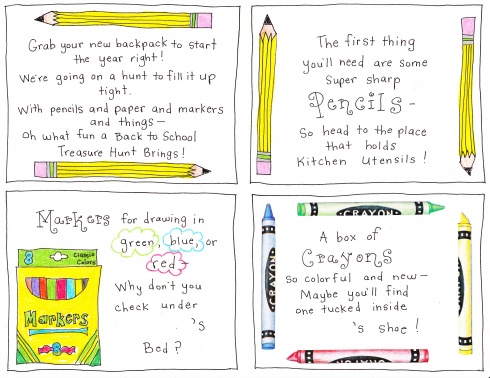 Grab your new backpack to start
the year right!
We're going on a hunt to fill it up
tight.
With pencils and paper and markers
and things—
Oh what fun a Back to School
Treasure Hunt Brings!
The first thing
you'll need are some
Super sharp
Pencils-
So head to the place
that holds
Kitchen Utensils!
Markers for drawing in
green, blue, or
red
Why don't you
check under
's
Bed?
8 Classic
Colors
Markers
8
A box of
Crayons
So colorful and new—
Maybe you'll find
one tucked inside
's shoe!
CRAYON
CRAYON
CRAYON
CRAYON